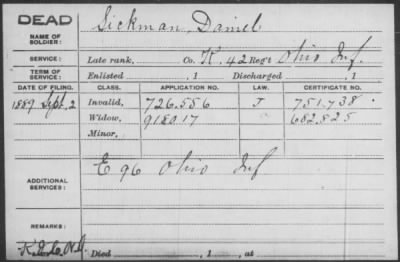 DEAD
NAME OF SOLDIER: Sickman, Daniel
SERVICE: Late rank, Co. K. 42 Reg't Ohio Inf.
TERM OF SERVICE: Enlisted , 1 Discharged , 1
DATE OF FILING. CLASS. APPLICATION NO. LAW. CERTIFICATE NO.
1889 Sept. 2 Invalid, 726.556 J 751.738.
Widow, 918017 682.825
Minor,
ADDITIONAL SERVICES: E 96 Ohio Inf
REMARKS:
Died , 1 , at